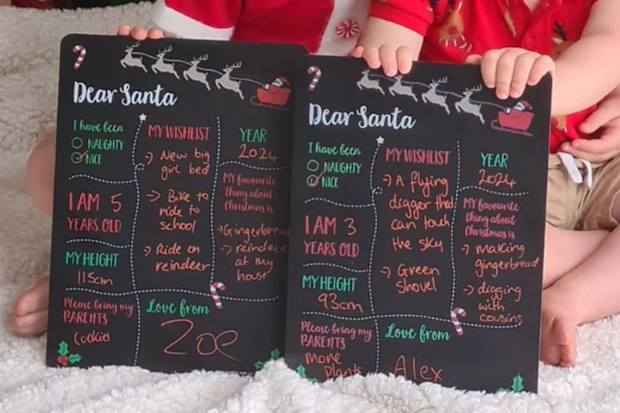 Dear Santa
I have been
NAUGHTY
NICE
I AM 5
YEARS OLD
MY HEIGHT
115cm
Please bring my
PARENTS
Cookies
MY WISHLIST
→ New big
girl bed
→ Bike to
ride to
school
→ Ride on
reindeer
YEAR
2024
My favourite
thing about
Christmas is
→ Gingerbread
→ reindeer
at my
house
Love from
Zoe
Dear Santa
I have been
NAUGHTY
NICE
I AM 3
YEARS OLD
MY HEIGHT
93cm
Please bring my
PARENTS
more
plants
MY WISHLIST
→ A flying
digger that
can touch
the sky
→ Green
shovel
YEAR
2024
My favourite
thing about
Christmas is
→ making
gingerbread
→ digging
with
cousins
Love from
Alex